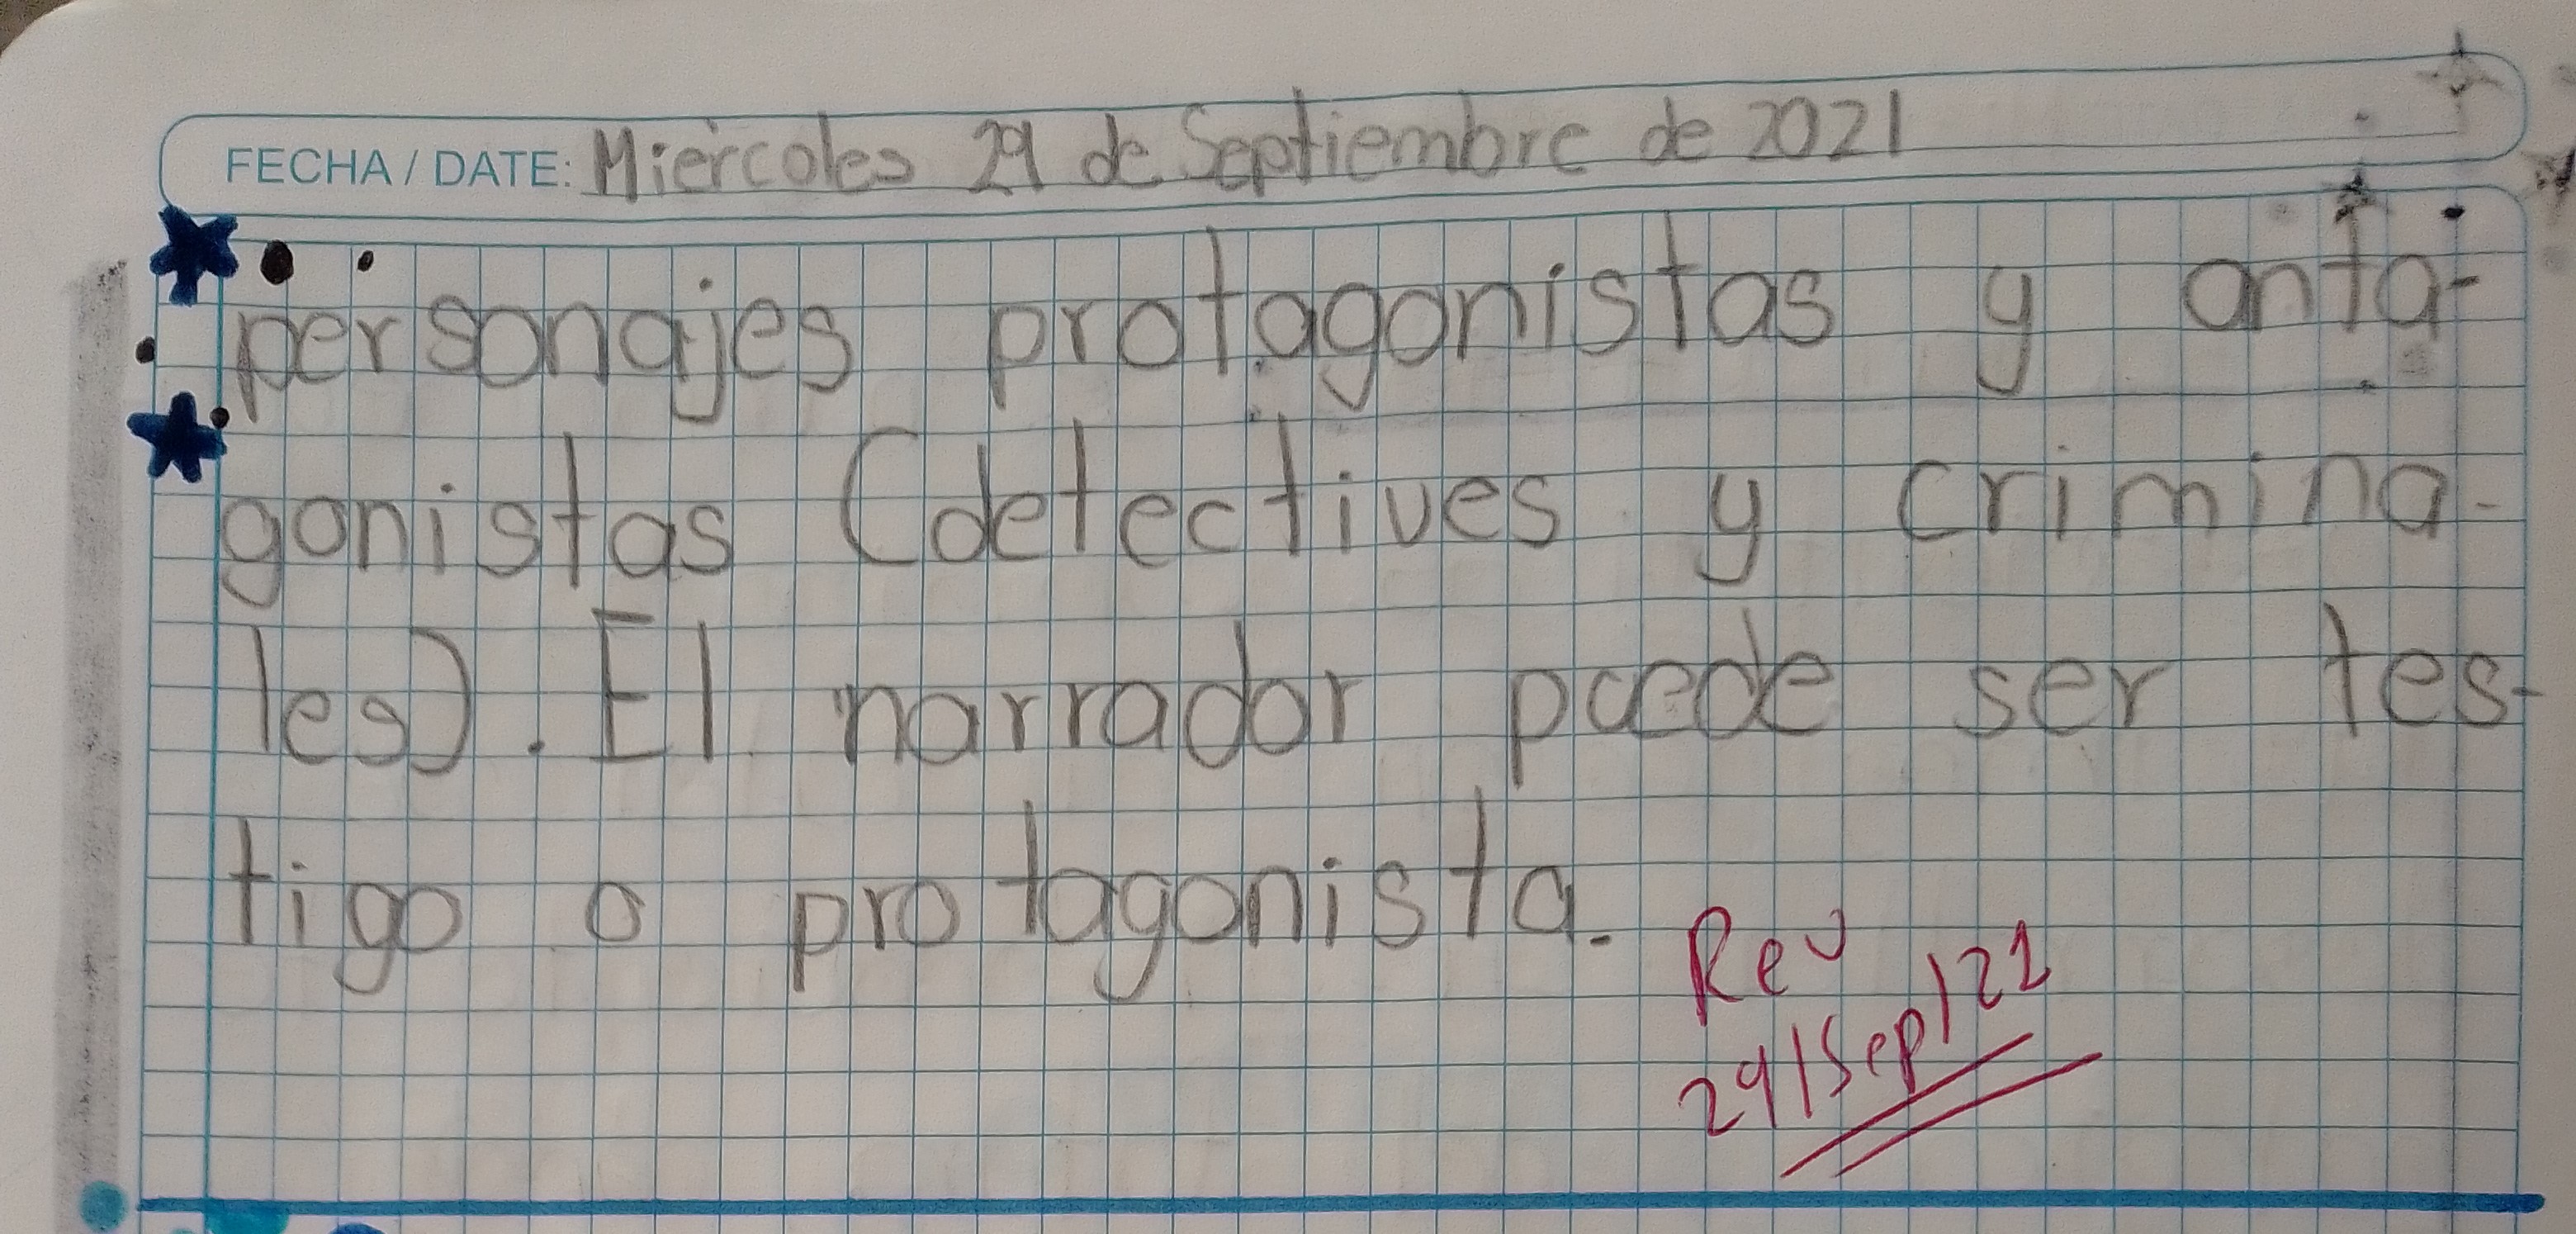 FECHA / DATE: Miércoles 29 de Septiembre de 2021
personajes protagonistas y anta-
gonistas (detectives y crimina-
les). El narrador puede ser tes-
tigo o protagonista.
Rev
29/Sep/21